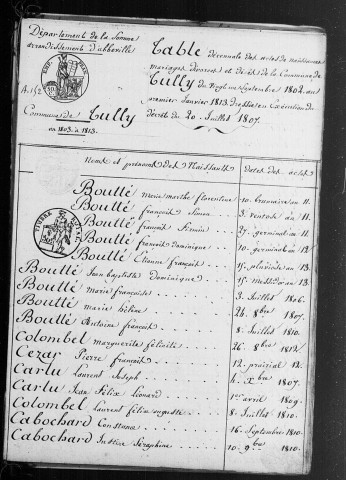 Département de la Somme
arrondissement d'abbeville
Table décennale des actes de naissances
mariages divorces et décès de la Commune de
Tully du vingt un septembre 1802 au
premier Janvier 1813. Dressée en Exécution du
décrêt du 20. Juillet 1807.
Commune de Tully
an 1803 à 1813.
Noms et prénoms des Naissants
dates des actes
Boutté marie marthe florentine 10. brumaire an 11.
Boutté françois Simon 3 Ventose an 11.
Boutté françois firmin 27 germinal an 11
Boutté françois Dominique 10. germinal an 12
Boutté Etienne françois 15. pluviose an 13
Boutté Jean baptiste Dominique 15. Messidor an 13
Boutté marie françoise 3 Juillet 1806.
Boutté marie hélène 24. 8bre 1807.
Boutté Antoine françois 8 Juillet 1810.
Colombel marguerite félicité 26 8bre 1812
Cezar Pierre françois 12 prairial 12
Carlu Laurent Joseph 4 Xbre 1807.
Carlu Jean félix Léonard 1er avril 1809.
Colombel Laurent félix auguste 8 Juillet 1810.
Cabochard Constance 16. Septembre 1810.
Cabochard Justine Séraphine 10. 9bre 1810.